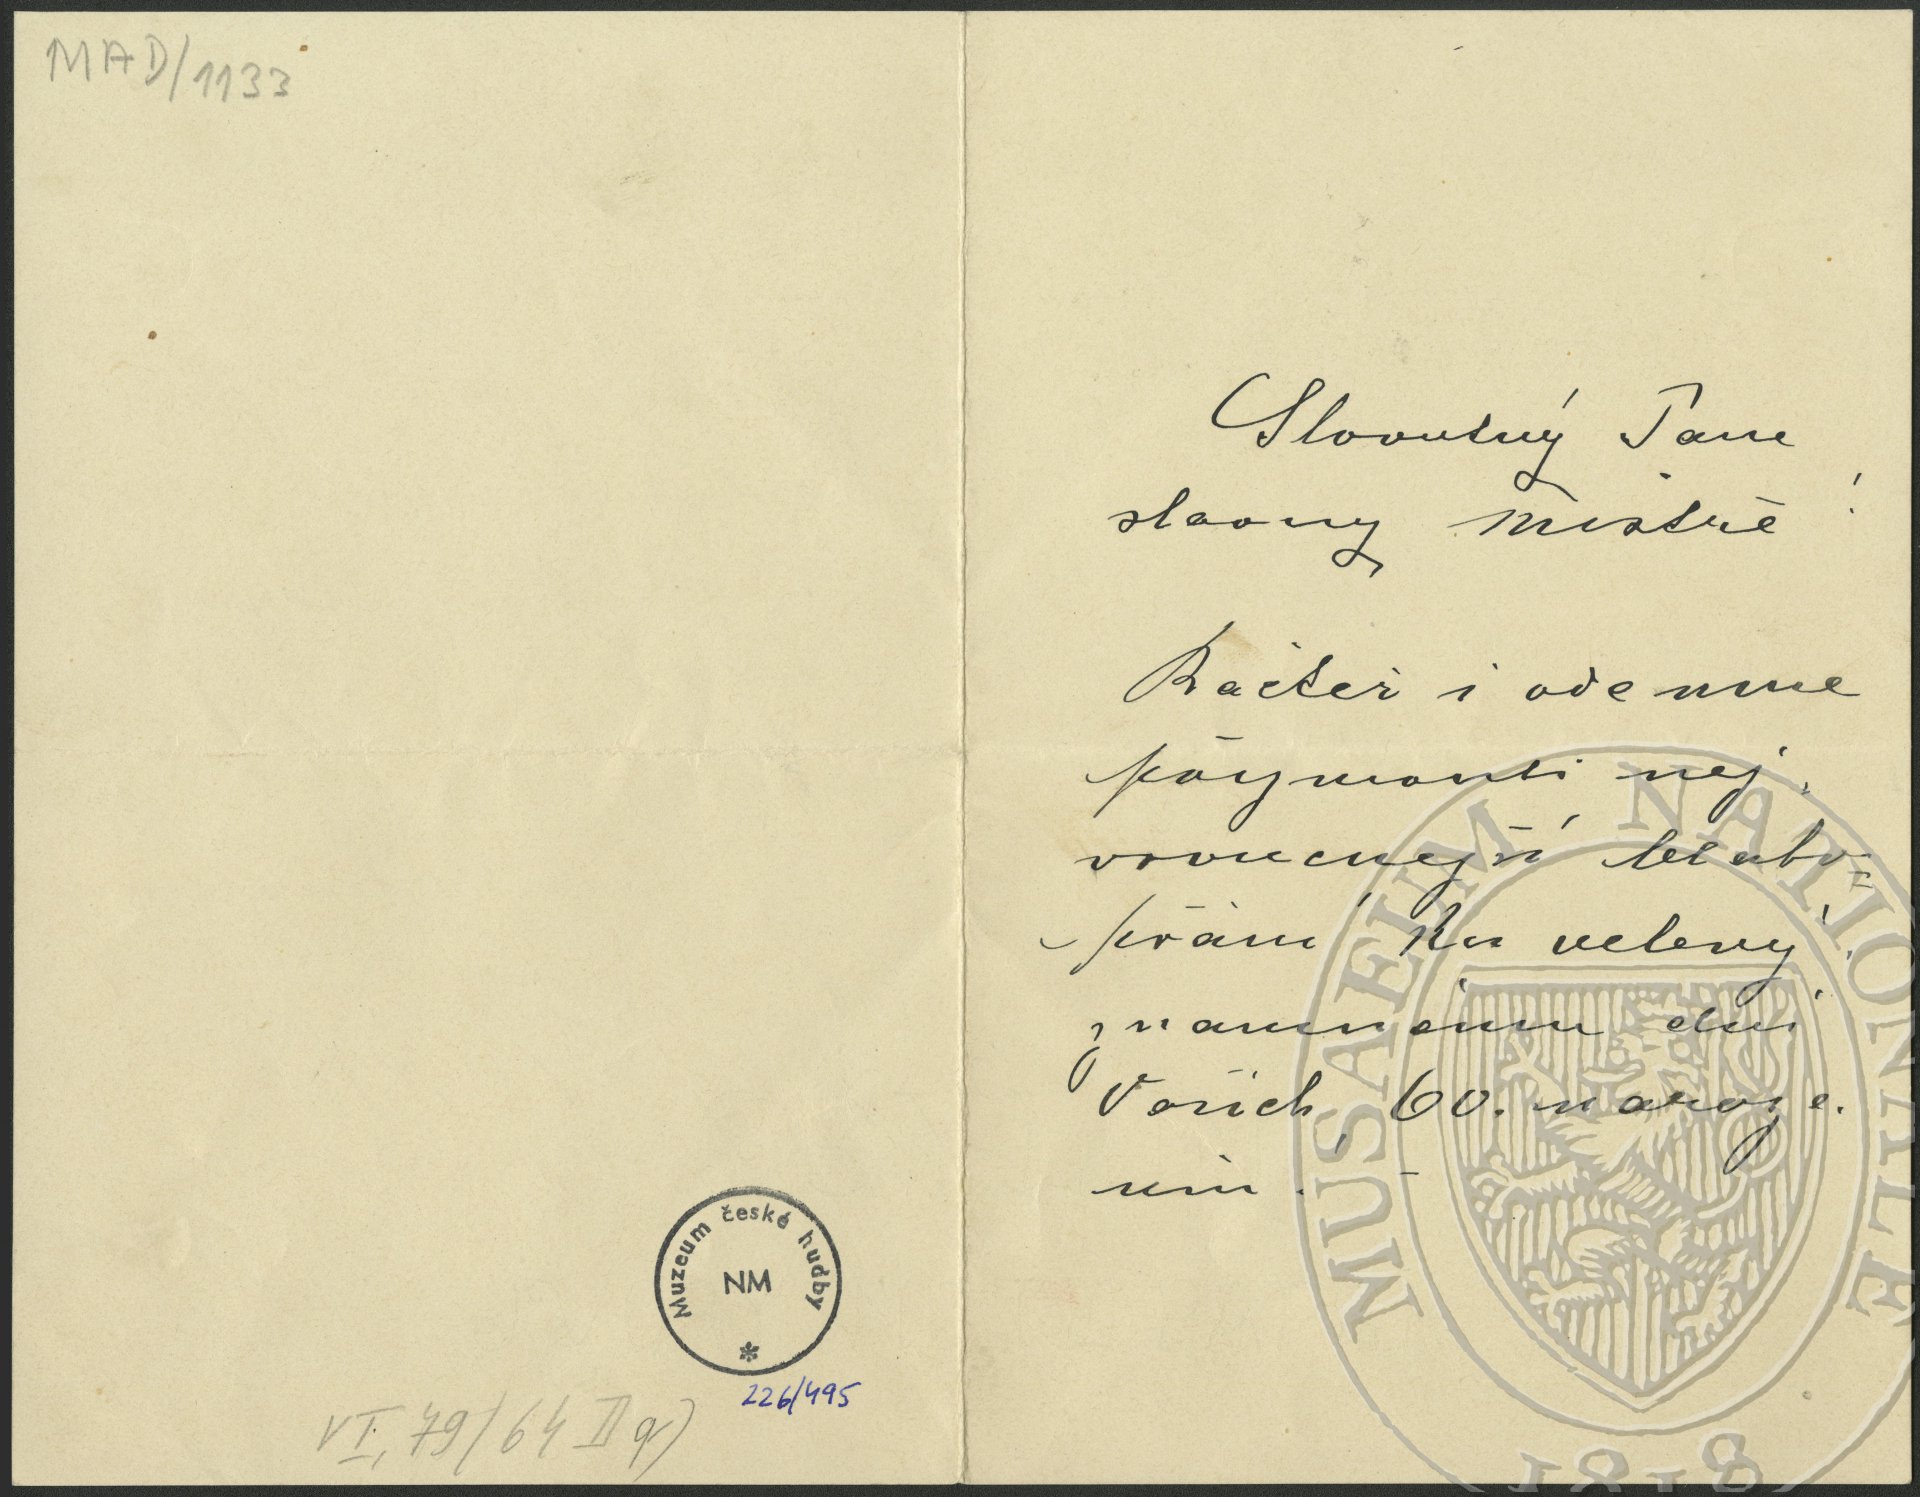 MAD/1133
Muzeum české hudby
NM
226/495
VI, 79/64 II q)
Slovutný Pane
slavny Mistře!
Račtež i ode mne
přijmouti nej-
vroucnejší blaho=
přání ku velevý-
znamnému dni
Vašich 60. naroze-
nin.
MUSAEUM NATIONALE
1818